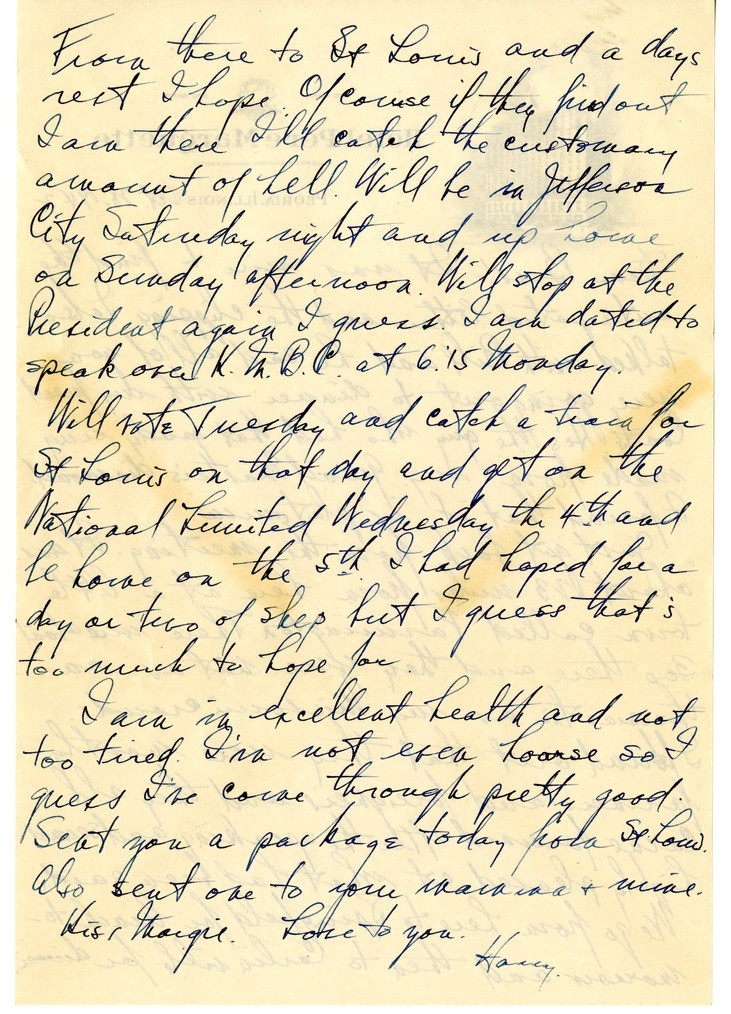 From there to St Louis and a days
rest I hope. Of course if they find out
I am there I'll catch the customary
amount of hell. Will be in Jefferson
City Saturday night and up home
on Sunday afternoon. Will stop at the
President again I guess. I am dated to
speak over K.M.B.C. at 6:15 Monday.
Will vote Tuesday and catch a train for
St Louis on that day and get on the
National Limited Wednesday the 4th and
be home on the 5th. I had hoped for a
day or two of sleep but I guess that's
too much to hope for.
I am in excellent health and not
too tired. I'm not even hoarse so I
guess I've come through pretty good.
Sent you a package today from St. Louis.
Also sent one to your mamma & mine.
Kiss Margie. Love to you.
Harry.